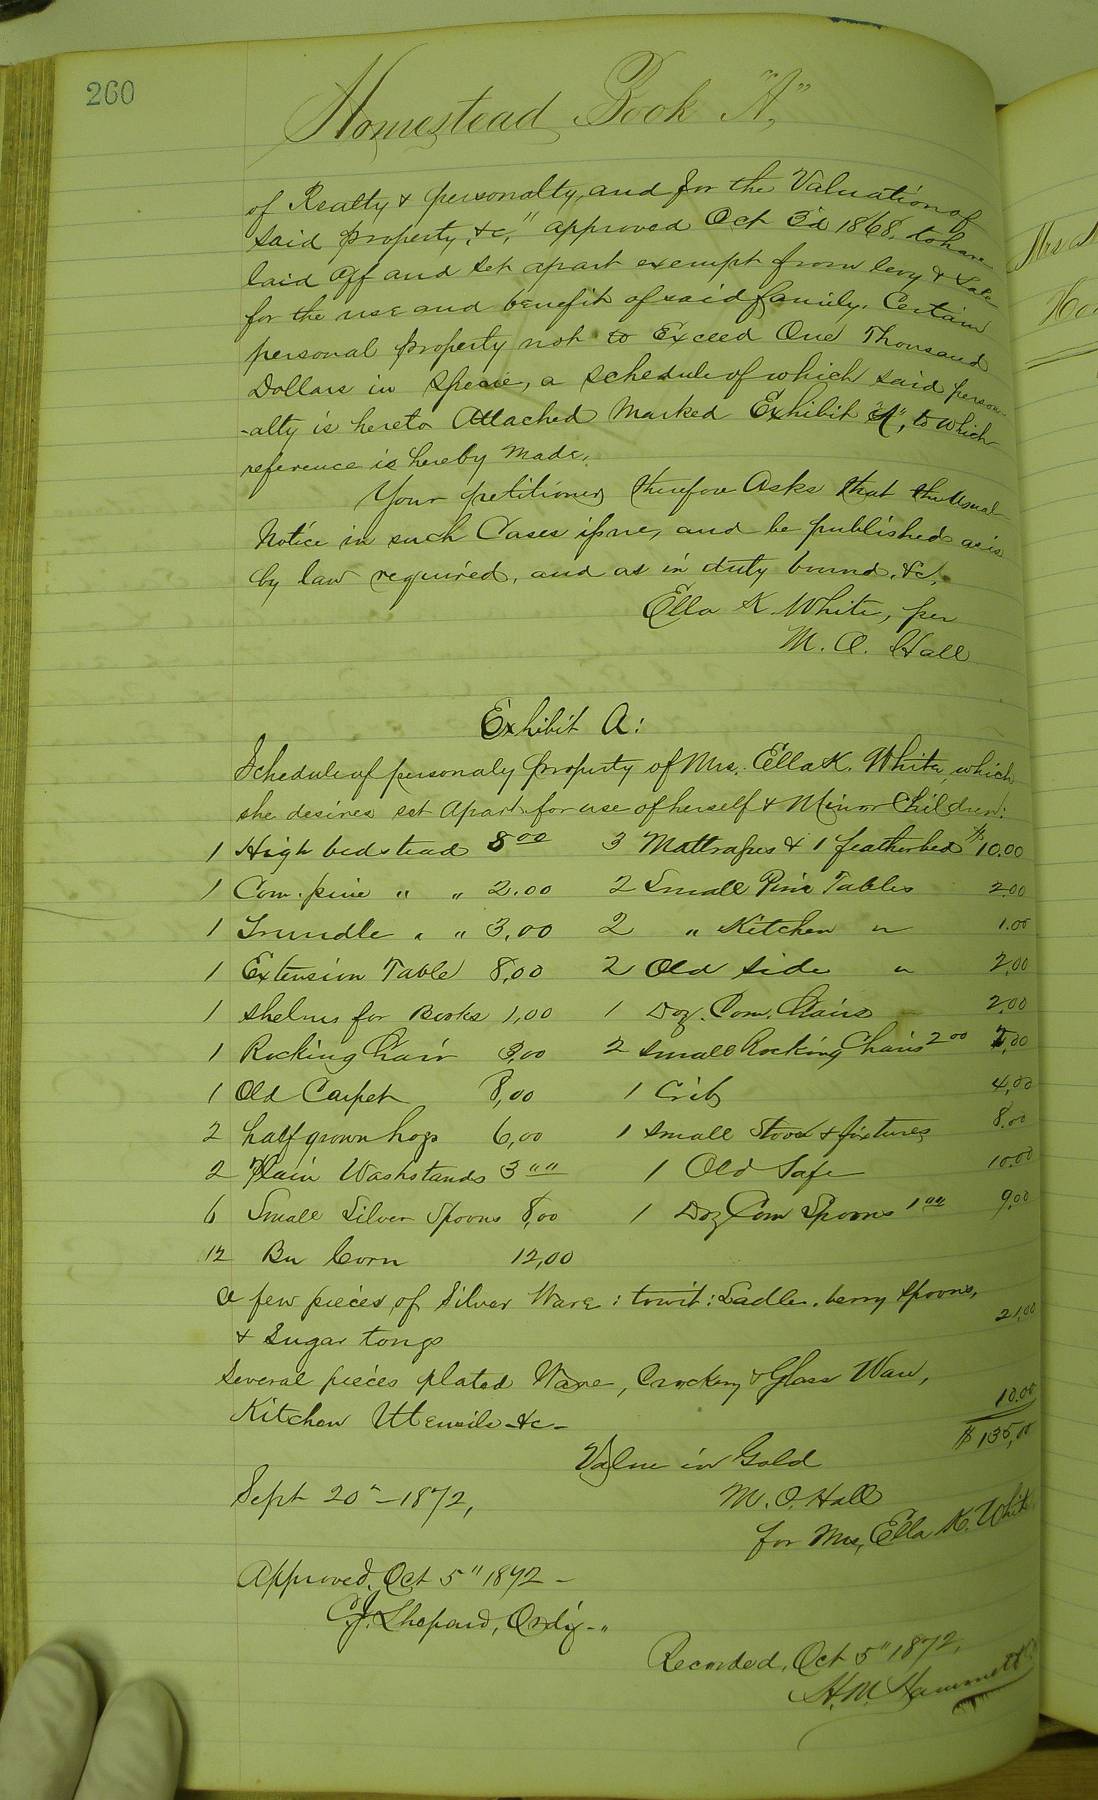 260
Homestead Book "A",
of Realty & personalty, and for the Valuation of
said property, &c," approved Oct 3d 1868, to have
laid off and set apart exempt from levy & Sale
for the use and benefit of said family, Certain
personal property not to Exceed One Thousand
Dollars in Specie, a schedule of which said person-
-alty is hereto Attached Marked Exhibit "A", to which
reference is hereby Made.
Your petitioner therefore Asks that the Usual
Notice in such Cases issue, and be published as is
by law required, and as in duty bound, &c,
Ella K. White, per
M. O. Hall
Exhibit A:
Schedule of personaly property of Mrs. Ella K. White, which
she desires set Apart for use of herself & Minor Children:
1 High bedstead 8 00 3 Mattrasses & 1 featherbed $10.00
1 Com. pine " " 2.00 2 Small Pine Tables 2.00
1 Trundle " " 3,00 2 " Kitchen " 1.00
1 Extension Table 8,00 2 Old Side " 2,00
1 Shelves for Books 1,00 1 Doz. Com. Chairs 2.00
1 Rocking Chair 3,00 2 Small Rocking Chairs 2 00 ,00
1 Old Carpet 8,00 1 Crib 4,00
2 half grown hogs 6,00 1 Small Stove & fixtures 8.00
2 Plain Washstands 3 "" 1 Old Safe 10.00
6 Small Silver Spoons 8,00 1 Doz Com Spoons 1 "" 9,00
12 Bu Corn 12,00
a few pieces of Silver Ware: towit: Ladle, berry Spoons,
& Sugar tongs 21,00
Several pieces plated Ware, Crockery & Glass Ware,
Kitchen Utensils &c- 10.00
$135,00
Value in Gold
Sept 20"-1872, M. O. Hall
for Mrs, Ella K. White
Approved, Oct 5" 1872-
C.J. Shepard, Ordy-"
Recorded, Oct 5" 1872,
H.M. Hammett